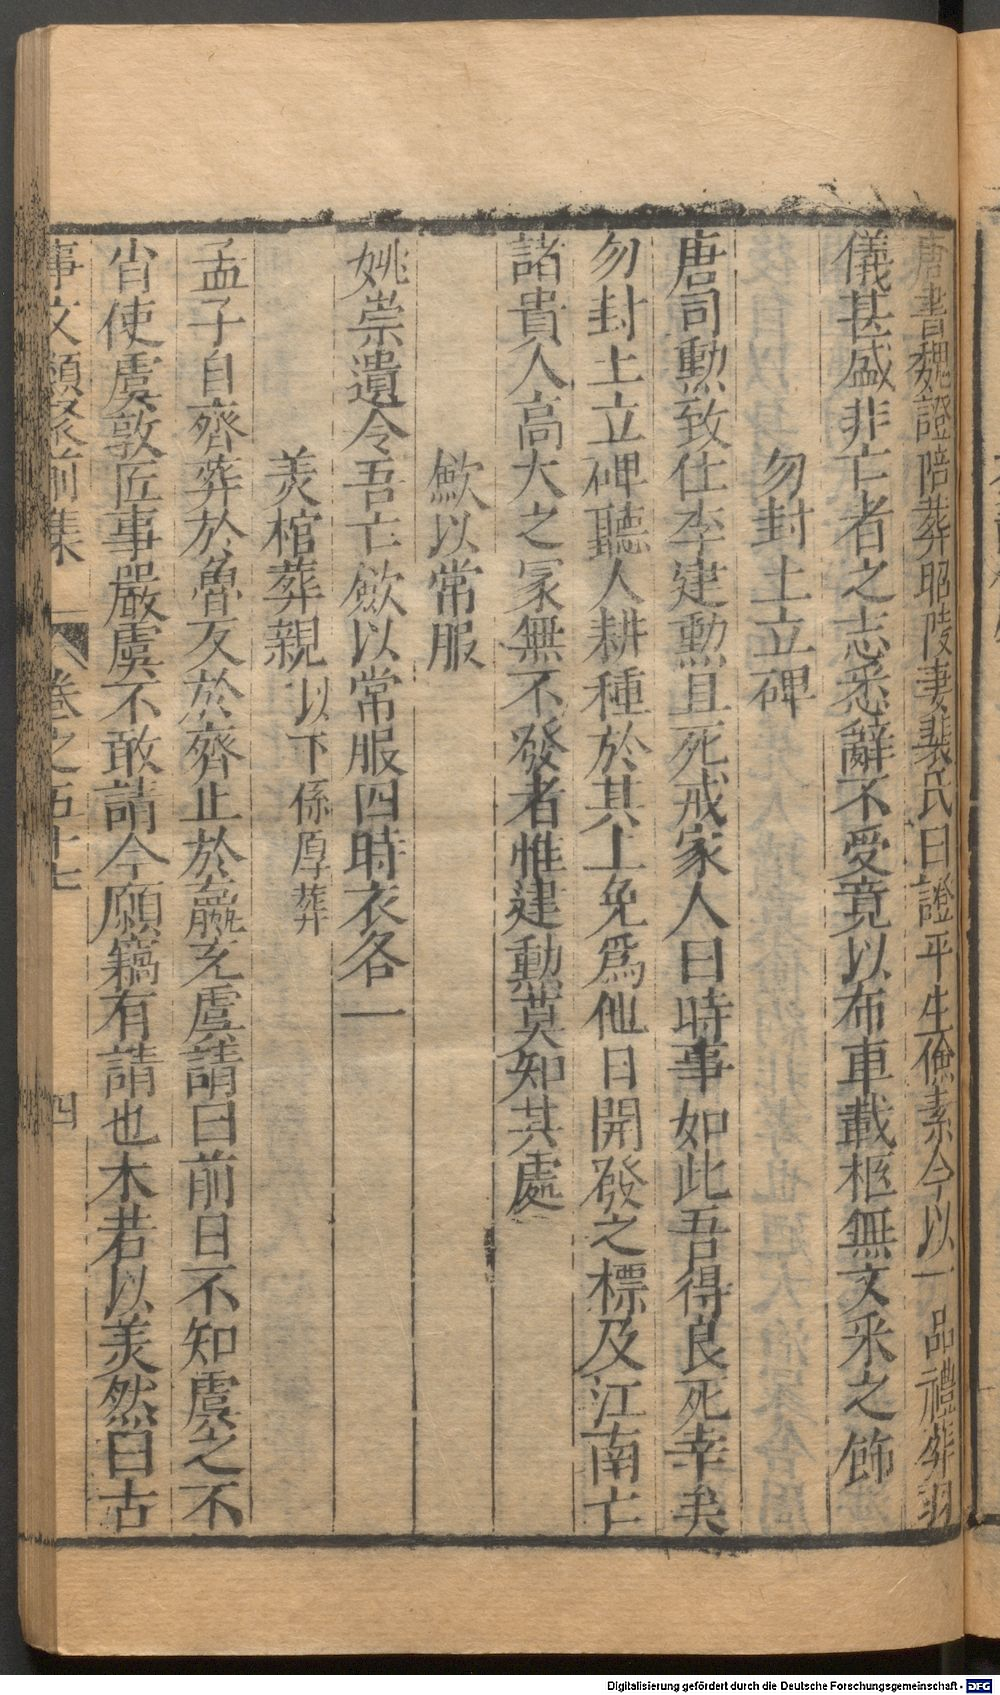 唐書魏證陪葬昭陵妻裴氏曰證平生儉素今以一品禮葬羽
儀甚盛非亡者之志悉辭不受竟以布車載柩無文采之飾
勿封土立碑
唐司勲致仕李建勲且死戒家人曰時事如此吾得良死幸矣
勿封土立碑聽人耕種於其上免爲他日開發之標及江南亡
諸貴人高大之冢無不發者惟建勲莫知其處
斂以常服
姚崇遺令吾亡斂以常服四時衣各一
羙棺葬親以下係厚葬
孟子自齊葬於魯反於齊止於嬴充虞請曰前日不知虞之不
肖使虞敦匠事嚴虞不敢請今願竊有請也木若以羙然曰古
事文類聚前集 卷之五十七 四
Digitalisierung gefördert durch die Deutsche Forschungsgemeinschaft - DFG